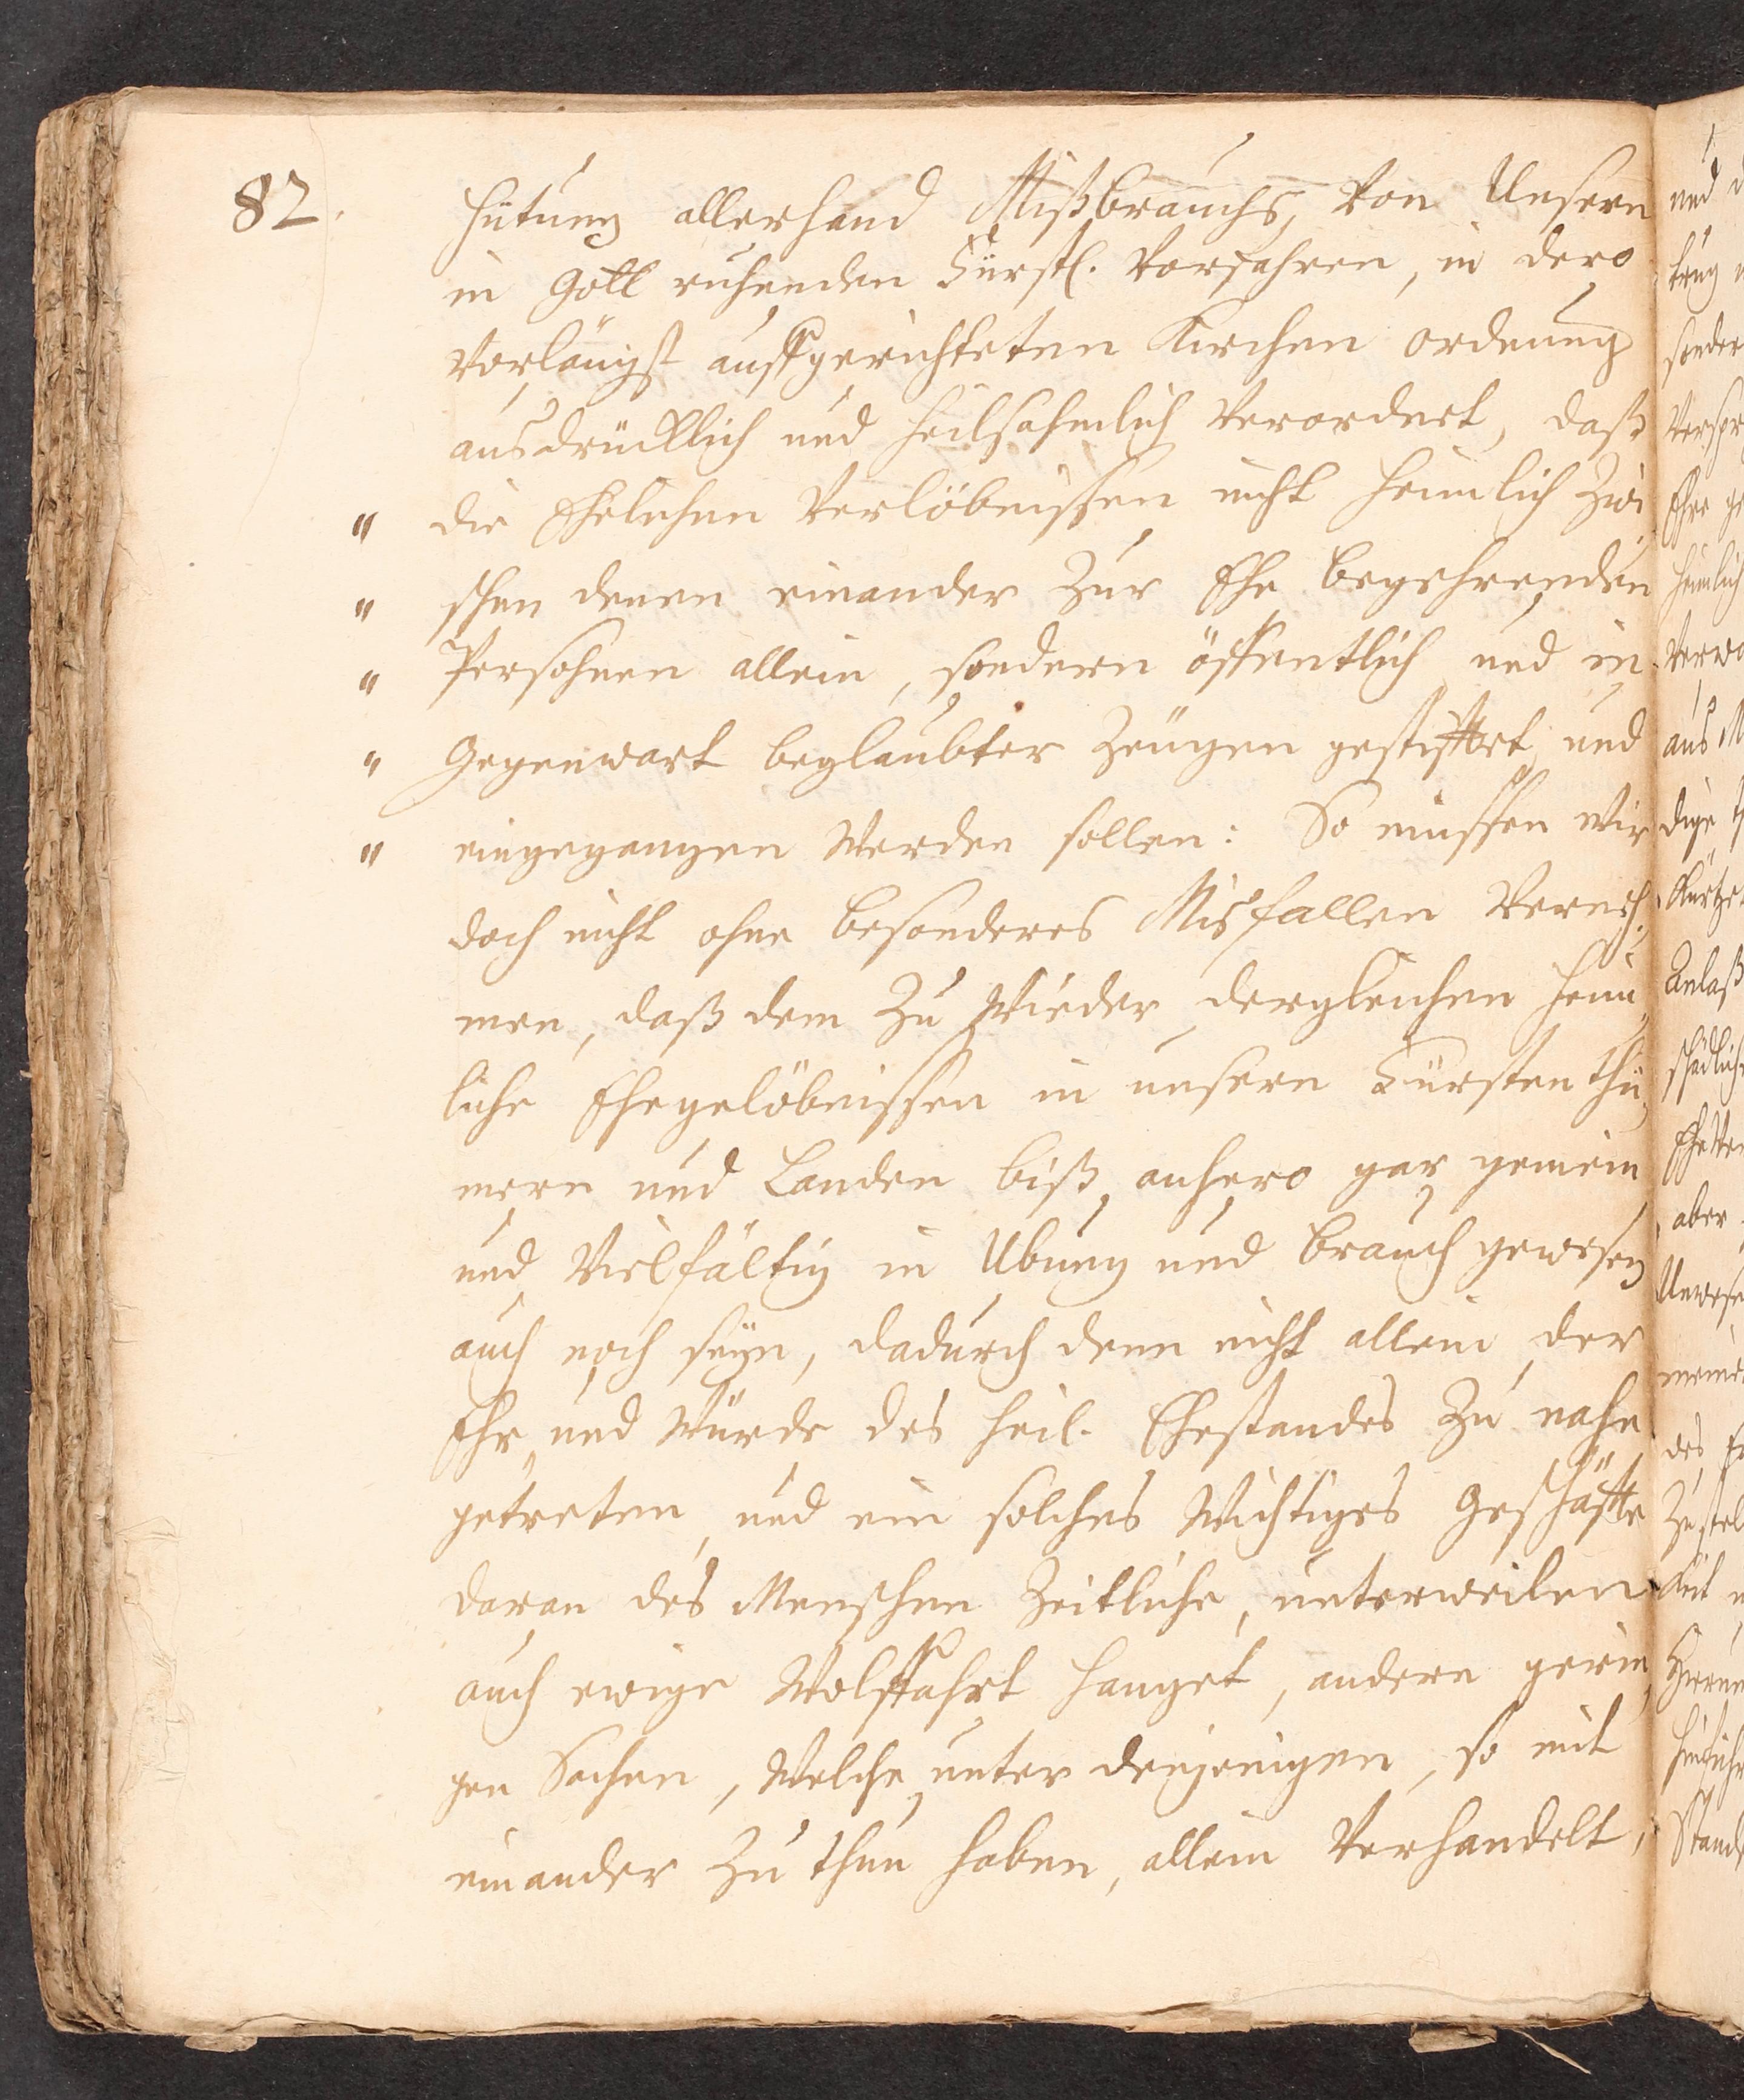 82.
hütung allerhand Mißbrauchs, von Unsern
in Gott ruhenden Fürstl. Vorfahren, in dero
vorlängst auffgerichteten Kirchen ordnung
ausdrücklich und heilsahmlich verordnet, daß
" die Ehelichen Verlöbnissen nicht heimlich zwi
" schen denen einander zur Ehe begehrenden
" Persohnen allein, sondern öffentlich und in
" Gegenwart beglaubter Zeugen gestifftet und
" eingegangen werden sollen: So müssen wir
doch nicht ohne besonderes Misfallen verneh,
men, daß dem zu wieder dergleichen heim,
liche Ehegelöbnissen in unsern Fürstenthü,
mern und Landen biß anhero gar gemein
und vielfältig in Ubung und Brauch gewesen
auch noch seyn, dadurch denn nicht allein der
Ehr und Würde des heil. Ehestandes zu nahe
getreten, und ein solches wichtiges Geschäffte
daran des Menschen Zeitliche, unterweilen
auch ewige Wolffahrt hanget, andern gerin,
gen Sachen, welche unter denjenigen, so mit
einander zu thun haben, allein verhandelt,
und
sonder
Ehe
heimlich
verwa
aus
Anlaß
schädliche
aber
Unwese
des